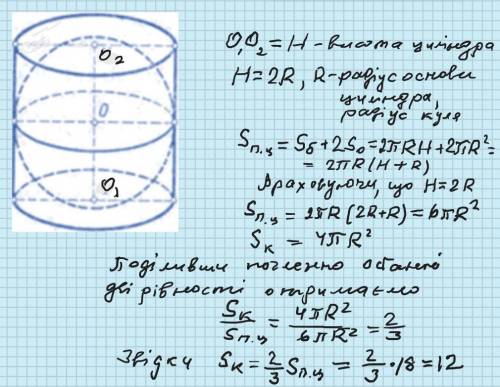 O₂
O
O₁
O₁O₂ = H - висота циліндра
H = 2R, R - радіус основи
циліндра,
радіус кулі
Sп.ц = Sб + 2So = 2πRH + 2πR² =
= 2πR(H + R)
Враховуючи, що H = 2R
Sп.ц = 2πR(2R + R) = 6πR²
Sк = 4πR²
Поділивши почленно останні
дві рівності отримаємо
Sк/Sп.ц = 4πR²/6πR² = 2/3
Звідки Sк = 2/3 Sп.ц = 2/3 · 18 = 12